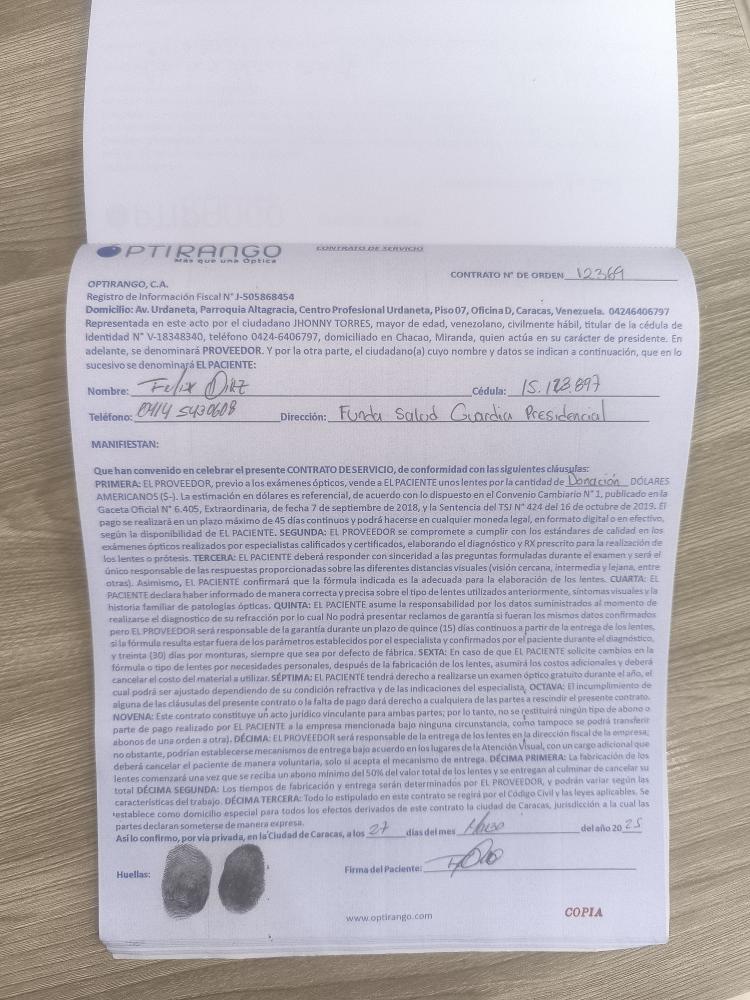 OPTIRANGO
Más que una Óptica
CONTRATO DE SERVICIO
CONTRATO N° DE ORDEN 12369
OPTIRANGO, C.A.
Registro de Información Fiscal N° J-505868454
Domicilio: Av. Urdaneta, Parroquia Altagracia, Centro Profesional Urdaneta, Piso 07, Oficina D, Caracas, Venezuela. 04246406797
Representada en este acto por el ciudadano JHONNY TORRES, mayor de edad, venezolano, civilmente hábil, titular de la cédula de
Identidad N° V-18348340, teléfono 0424-6406797, domiciliado en Chacao, Miranda, quien actúa en su carácter de presidente. En
adelante, se denominará PROVEEDOR. Y por la otra parte, el ciudadano(a) cuyo nombre y datos se indican a continuación, que en lo
sucesivo se denominará EL PACIENTE:
Nombre: Felix Diaz Cédula: 15.123.897
Teléfono: 0414 5430608 Dirección: Funda Salud Guardia Presidencial
MANIFIESTAN:
Que han convenido en celebrar el presente CONTRATO DE SERVICIO, de conformidad con las siguientes cláusulas:
PRIMERA: EL PROVEEDOR, previo a los exámenes ópticos, vende a EL PACIENTE unos lentes por la cantidad de Donación DÓLARES
AMERICANOS ($-). La estimación en dólares es referencial, de acuerdo con lo dispuesto en el Convenio Cambiario N° 1, publicado en la
Gaceta Oficial N° 6.405, Extraordinaria, de fecha 7 de septiembre de 2018, y la Sentencia del TSJ N° 424 del 16 de octubre de 2019. El
pago se realizará en un plazo máximo de 45 días continuos y podrá hacerse en cualquier moneda legal, en formato digital o en efectivo,
según la disponibilidad de EL PACIENTE. SEGUNDA: EL PROVEEDOR se compromete a cumplir con los estándares de calidad en los
exámenes ópticos realizados por especialistas calificados y certificados, elaborando el diagnóstico y RX prescrito para la realización de
los lentes o prótesis. TERCERA: EL PACIENTE deberá responder con sinceridad a las preguntas formuladas durante el examen y será el
único responsable de las respuestas proporcionadas sobre las diferentes distancias visuales (visión cercana, intermedia y lejana, entre
otras). Asimismo, EL PACIENTE confirmará que la fórmula indicada es la adecuada para la elaboración de los lentes. CUARTA: EL
PACIENTE declara haber informado de manera correcta y precisa sobre el tipo de lentes utilizados anteriormente, síntomas visuales y la
historia familiar de patologías ópticas. QUINTA: EL PACIENTE asume la responsabilidad por los datos suministrados al momento de
realizarse el diagnostico de su refracción por lo cual No podrá presentar reclamos de garantía si fueran los mismos datos confirmados
pero EL PROVEEDOR será responsable de la garantía durante un plazo de quince (15) días continuos a partir de la entrega de los lentes,
si la fórmula resulta estar fuera de los parámetros establecidos por el especialista y confirmados por el paciente durante el diagnóstico,
y treinta (30) días por monturas, siempre que sea por defecto de fábrica. SEXTA: En caso de que EL PACIENTE solicite cambios en la
fórmula o tipo de lentes por necesidades personales, después de la fabricación de los lentes, asumirá los costos adicionales y deberá
cancelar el costo del material a utilizar. SÉPTIMA: EL PACIENTE tendrá derecho a realizarse un examen óptico gratuito durante el año, el
cual podrá ser ajustado dependiendo de su condición refractiva y de las indicaciones del especialista. OCTAVA: El incumplimiento de
alguna de las cláusulas del presente contrato o la falta de pago dará derecho a cualquiera de las partes a rescindir el presente contrato.
NOVENA: Este contrato constituye un acto jurídico vinculante para ambas partes; por lo tanto, no se restituirá ningún tipo de abono o
parte de pago realizado por EL PACIENTE a la empresa mencionada bajo ninguna circunstancia, como tampoco se podrá transferir
abonos de una orden a otra). DÉCIMA: EL PROVEEDOR será responsable de la entrega de los lentes en la dirección fiscal de la empresa;
no obstante, podrían establecerse mecanismos de entrega bajo acuerdo en los lugares de la Atención Visual, con un cargo adicional que
deberá cancelar el paciente de manera voluntaria, solo si acepta el mecanismo de entrega. DÉCIMA PRIMERA: La fabricación de los
lentes comenzará una vez que se reciba un abono mínimo del 50% del valor total de los lentes y se entregan al culminar de cancelar su
total DÉCIMA SEGUNDA: Los tiempos de fabricación y entrega serán determinados por EL PROVEEDOR, y podrán variar según las
características del trabajo. DÉCIMA TERCERA: Todo lo estipulado en este contrato se regirá por el Código Civil y las leyes aplicables. Se
establece como domicilio especial para todos los efectos derivados de este contrato la ciudad de Caracas, jurisdicción a la cual las
partes declaran someterse de manera expresa.
Así lo confirmo, por vía privada, en la Ciudad de Caracas, a los 27 días del mes Marzo del año 20 25
Huellas:
Firma del Paciente:
www.optirango.com
COPIA